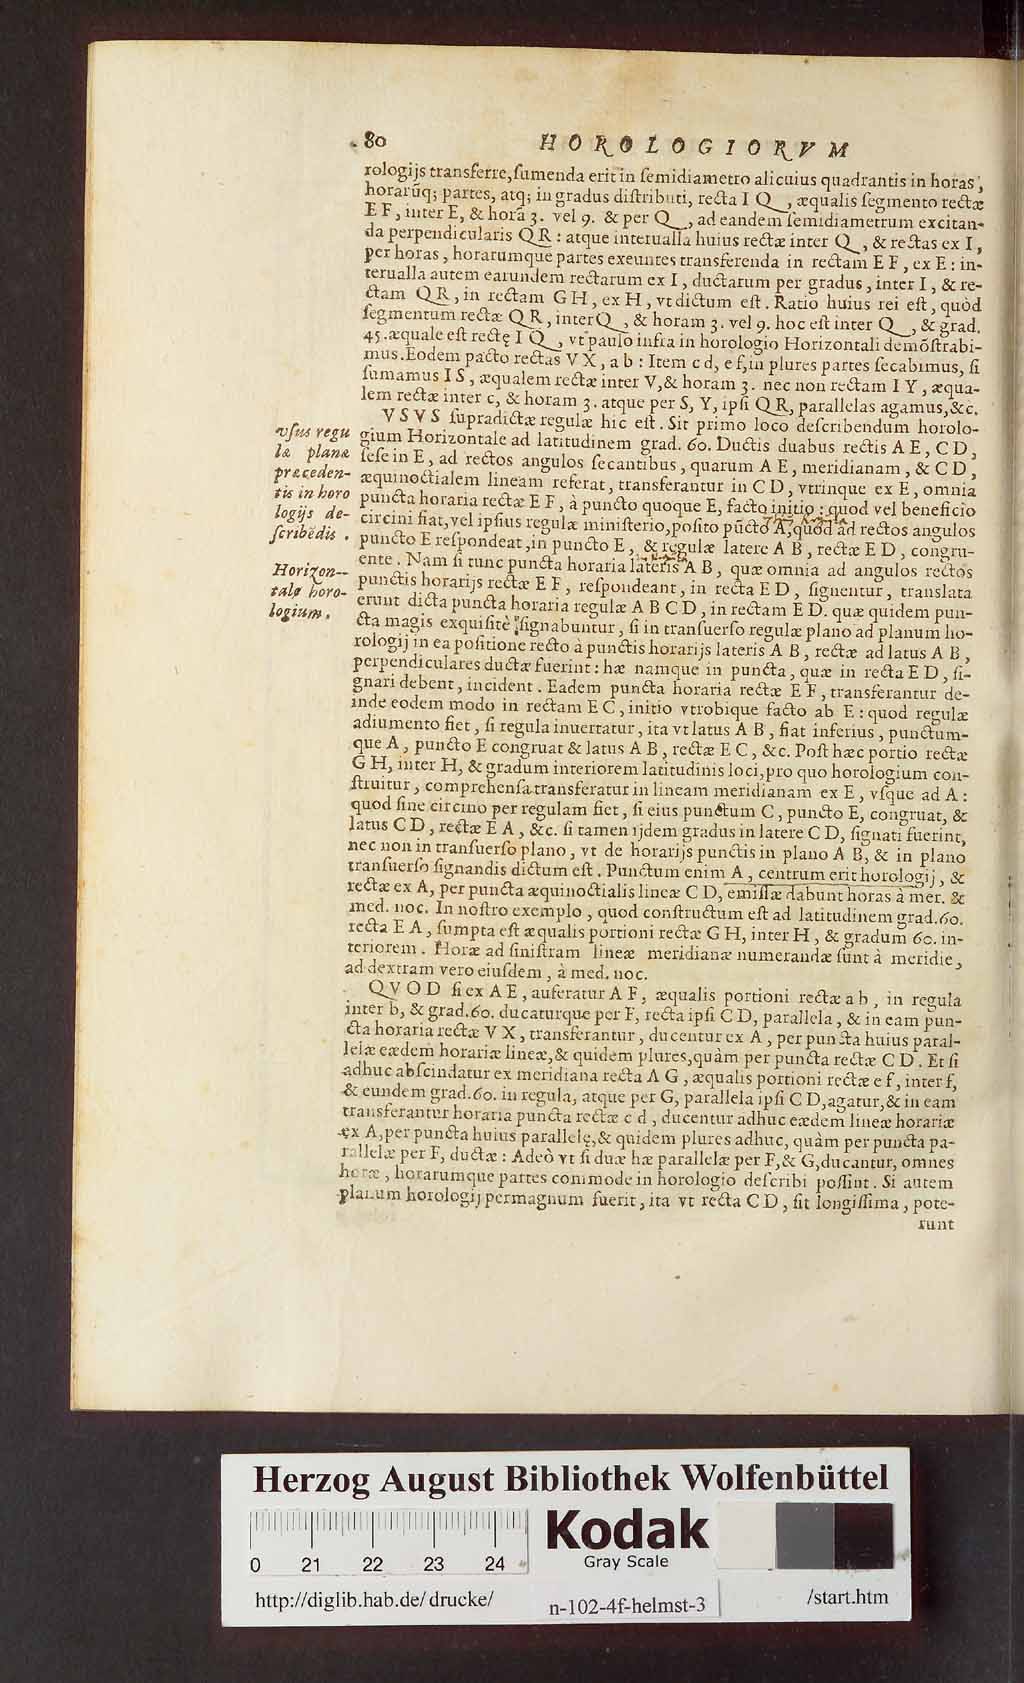 80 HOROLOGIORVM
rologijs transferre, ſumenda erit in ſemidiametro alicuius quadrantis in horas,
horarũq; partes, atq; in gradus diſtributi, recta I Q, æqualis ſegmento rectæ
E F, inter E, & horã 3. vel 9. & per Q, ad eandem ſemidiametrum excitan-
da perpendicularis QR: atque interualla huius rectæ inter Q, & rectas ex I,
per horas, horarumque partes exeuntes transferenda in rectam E F, ex E: in-
terualla autem earundem rectarum ex I, ductarum per gradus, inter I, & re-
ctam QR, in rectam G H, ex H, vt dictum eſt. Ratio huius rei eſt, quòd
ſegmentum rectæ QR, inter Q, & horam 3. vel 9. hoc eſt inter Q, & grad.
45. æquale eſt rectę I Q, vt paulo infra in horologio Horizontali demõſtrabi-
mus. Eodem pacto rectas V X, a b: Item c d, e f, in plures partes ſecabimus, ſi
ſumamus I S, æqualem rectæ inter V, & horam 3. nec non rectam I Y, æqua-
lem rectæ inter c, & horam 3. atque per S, Y, ipſi QR, parallelas agamus, &c.
VSVS ſupradictæ regulæ hic eſt. Sit primo loco deſcribendum horolo-
gium Horizontale ad latitudinem grad. 60. Ductis duabus rectis A E, C D,
ſeſe in E, ad rectos angulos ſecantibus, quarum A E, meridianam, & C D,
æquinoctialem lineam referat, transferantur in C D, vtrinque ex E, omnia
puncta horaria rectæ E F, à puncto quoque E, facto initio: quod vel beneficio
circini fiat, vel ipſius regulæ miniſterio, poſito pũcto A, quod ad rectos angulos
puncto E reſpondeat, in puncto E, & regulæ latere A B, rectæ E D, congru-
ente. Nam ſi tunc puncta horaria lateris A B, quæ omnia ad angulos rectos
punctis horarijs rectæ E F, reſpondeant, in recta E D, ſignentur, translata
erunt dicta puncta horaria regulæ A B C D, in rectam E D. quæ quidem pun-
cta magis exquiſitè ſignabuntur, ſi in tranſuerſo regulæ plano ad planum ho-
rologij in ea poſitione recto à punctis horarijs lateris A B, rectæ ad latus A B,
perpendiculares ductæ fuerint: hæ namque in puncta, quæ in recta E D, ſi-
gnari debent, incident. Eadem puncta horaria rectæ E F, transferantur de-
inde eodem modo in rectam E C, initio vtrobique facto ab E: quod regulæ
adiumento fiet, ſi regula inuertatur, ita vt latus A B, fiat inferius, punctum-
que A, puncto E congruat & latus A B, rectæ E C, &c. Poſt hæc portio rectæ
G H, inter H, & gradum interiorem latitudinis loci, pro quo horologium con-
ſtruitur, comprehenſa transferatur in lineam meridianam ex E, vſque ad A:
quod ſine circino per regulam fiet, ſi eius punctum C, puncto E, congruat, &
latus C D, rectæ E A, &c. ſi tamen ijdem gradus in latere C D, ſignati fuerint,
nec non in tranſuerſo plano, vt de horarijs punctis in plano A B, & in plano
tranſuerſo ſignandis dictum eſt. Punctum enim A, centrum erit horologij, &
rectæ ex A, per puncta æquinoctialis lineæ C D, emiſſæ dabunt horas à mer. &
med. noc. In noſtro exemplo, quod conſtructum eſt ad latitudinem grad. 60.
recta E A, ſumpta eſt æqualis portioni rectæ G H, inter H, & gradum 60. in-
teriorem. Horæ ad ſiniſtram lineæ meridianæ numerandæ ſunt à meridie,
ad dextram vero eiuſdem, à med. noc.
QVOD ſi ex A E, auferatur A F, æqualis portioni rectæ a b, in regula
inter b, & grad. 60. ducaturque per F, recta ipſi C D, parallela, & in eam pun-
cta horaria rectæ V X, transferantur, ducentur ex A, per puncta huius paral-
lelæ eædem horariæ lineæ, & quidem plures, quàm per puncta rectæ C D. Et ſi
adhuc abſcindatur ex meridiana recta A G, æqualis portioni rectæ e f, inter f,
& eundem grad. 60. in regula, atque per G, parallela ipſi C D, agatur, & in eam
transferantur horaria puncta rectæ c d, ducentur adhuc eædem lineæ horariæ
ex A, per puncta huius parallelę, & quidem plures adhuc, quàm per puncta pa-
rallelæ per F, ductæ: Adeò vt ſi duæ hæ parallelæ per F, & G, ducantur, omnes
horæ, horarumque partes commode in horologio deſcribi poſſint. Si autem
planum horologij permagnum fuerit, ita vt recta C D, ſit longiſſima, pote-
runt
vſus regu
læ planæ
præceden-
tis in horo
logijs de-
ſcribẽdis.
Horizon-
tale horo-
logium.
Herzog August Bibliothek Wolfenbüttel
0 21 22 23 24
Kodak
Gray Scale
http://diglib.hab.de/drucke/ n-102-4f-helmst-3 /start.htm